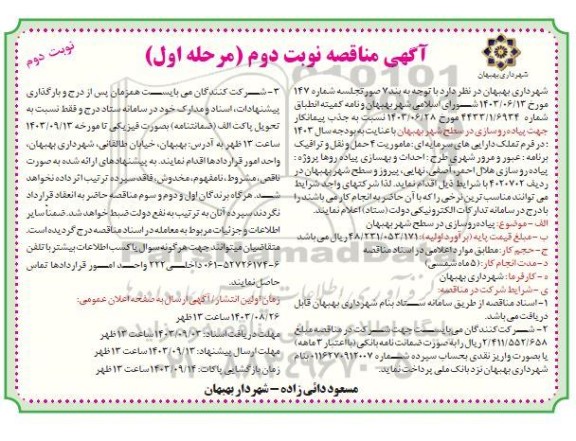 نوبت دوم
آگهی مناقصه نوبت دوم (مرحله اول)
شهرداری بهبهان
شهرداری بهبهان در نظر دارد با توجه به بند ۷ صورتجلسه شماره ۱۴۷
مورخ ۱۴۰۳/۰۶/۱۳ شورای اسلامی شهر بهبهان و نامه کمیته انطباق
شماره ۴۴۳۳/۱/۶۹۲۴ مورخ ۱۴۰۳/۰۶/۲۸ نسبت به جذب پیمانکار
جهت پیاده روسازی در سطح شهر بهبهان با عنایت به بودجه سال ۱۴۰۳
: در فرم تملک دارایی های سرمایه ای: ماموریت ۴ حمل و نقل و ترافیک
برنامه : عبور و مرور شهری طرح : احداث و بهسازی پیاده روها پروژه :
پیاده روسازی هلال احمر، اصفی، نهایی، پیروز و سطح شهر بهبهان در
ردیف ۴۰۲۰۷۰۲ با شرایط ذیل اقدام نماید. لذا شرکتهای واجد شرایط
می توانند مناسب ترین نرخی را که با آن حاضر به انجام کار می باشند را
با درج در سامانه تدارکات الکترونیکی دولت (ستاد) اعلام نمایند.
الف - موضوع: پیاده روسازی در سطح شهر بهبهان
ب - مبلغ قیمت پایه (برآورد اولیه): ۴۸/۲۳۱/۰۵۳/۱۷۱ ریال می باشد
ج - حجم کار: مطابق موارد اعلامی در اسناد مناقصه
د - مدت انجام کار: (۵ ماه شمسی)
ه - کارفرما: شهرداری بهبهان
ی - شرایط شرکت در مناقصه:
۱- اسناد مناقصه از طریق سامانه ستاد بنام شهرداری بهبهان قابل
دریافت می باشد.
۲- شرکت کنندگان می بایست جهت شرکت در مناقصه مبلغ
۲/۴۱۱/۵۵۲/۶۵۸ ریال را به صورت ضمانت نامه بانکی (با اعتبار ۳ ماهه)
یا بصورت واریز نقدی بحساب سپرده شماره ۰۱۱۶۲۷۰۹۱۲۰۰۷ بنام
شهرداری بهبهان نزد بانک ملی پرداخت نماید.
۳- شرکت کنندگان می بایست همزمان پس از درج و بارگذاری
پیشنهادات، اسناد و مدارک خود در سامانه ستاد درج و فقط نسبت به
تحویل پاکت الف (ضمانتنامه) بصورت فیزیکی تا مورخه ۱۴۰۳/۰۹/۱۳
ساعت ۱۳ ظهر به آدرس: بهبهان، خیابان طالقانی، شهرداری بهبهان،
واحد امور قراردادها اقدام نمایند. به پیشنهادهای ارائه شده به صورت
ناقص، مشروط، نامفهوم، مخدوش، فاقد سپرده ترتیب اثر داده نخواهد
شد. هرگاه برندگان اول و دوم و سوم مناقصه حاضر به انعقاد قرارداد
نگردند سپرده آنان به ترتیب به نفع دولت ضبط خواهد شد. ضمناً سایر
اطلاعات و جزئیات مربوط به معامله در اسناد مناقصه درج گردیده است.
متقاضیان میتوانند جهت هرگونه سوال یا کسب اطلاعات بیشتر با تلفن
۰۶۱-۵۲۷۲۶۱۷۴-۶ داخلی ۲۲۲ واحد امور قراردادها تماس
حاصل نمایند.
زمان اولین انتشار آگهی ارسال به صفحه اعلان عمومی:
۱۴۰۳/۰۸/۲۶ ساعت ۱۳ ظهر
مهلت دریافت اسناد: ۱۴۰۳/۰۹/۰۳ ساعت ۱۳ ظهر
مهلت ارسال پیشنهاد: ۱۴۰۳/۰۹/۱۳ ساعت ۱۳ ظهر
زمان بازگشایی پاکات: ۱۴۰۳/۰۹/۱۴ ساعت ۱۳ ظهر
مسعود دانی زاده - شهردار بهبهان